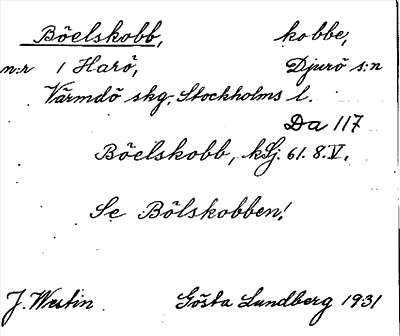 Böelskobb, kobbe,
n:r 1 Harö, Djurö s:n
Värmdö skg. Stockholms l.
Da 117
Böelskobb, kSj. 61. 8. V.
Se Bölskobben!
J. Westin Gösta Lundberg 1931